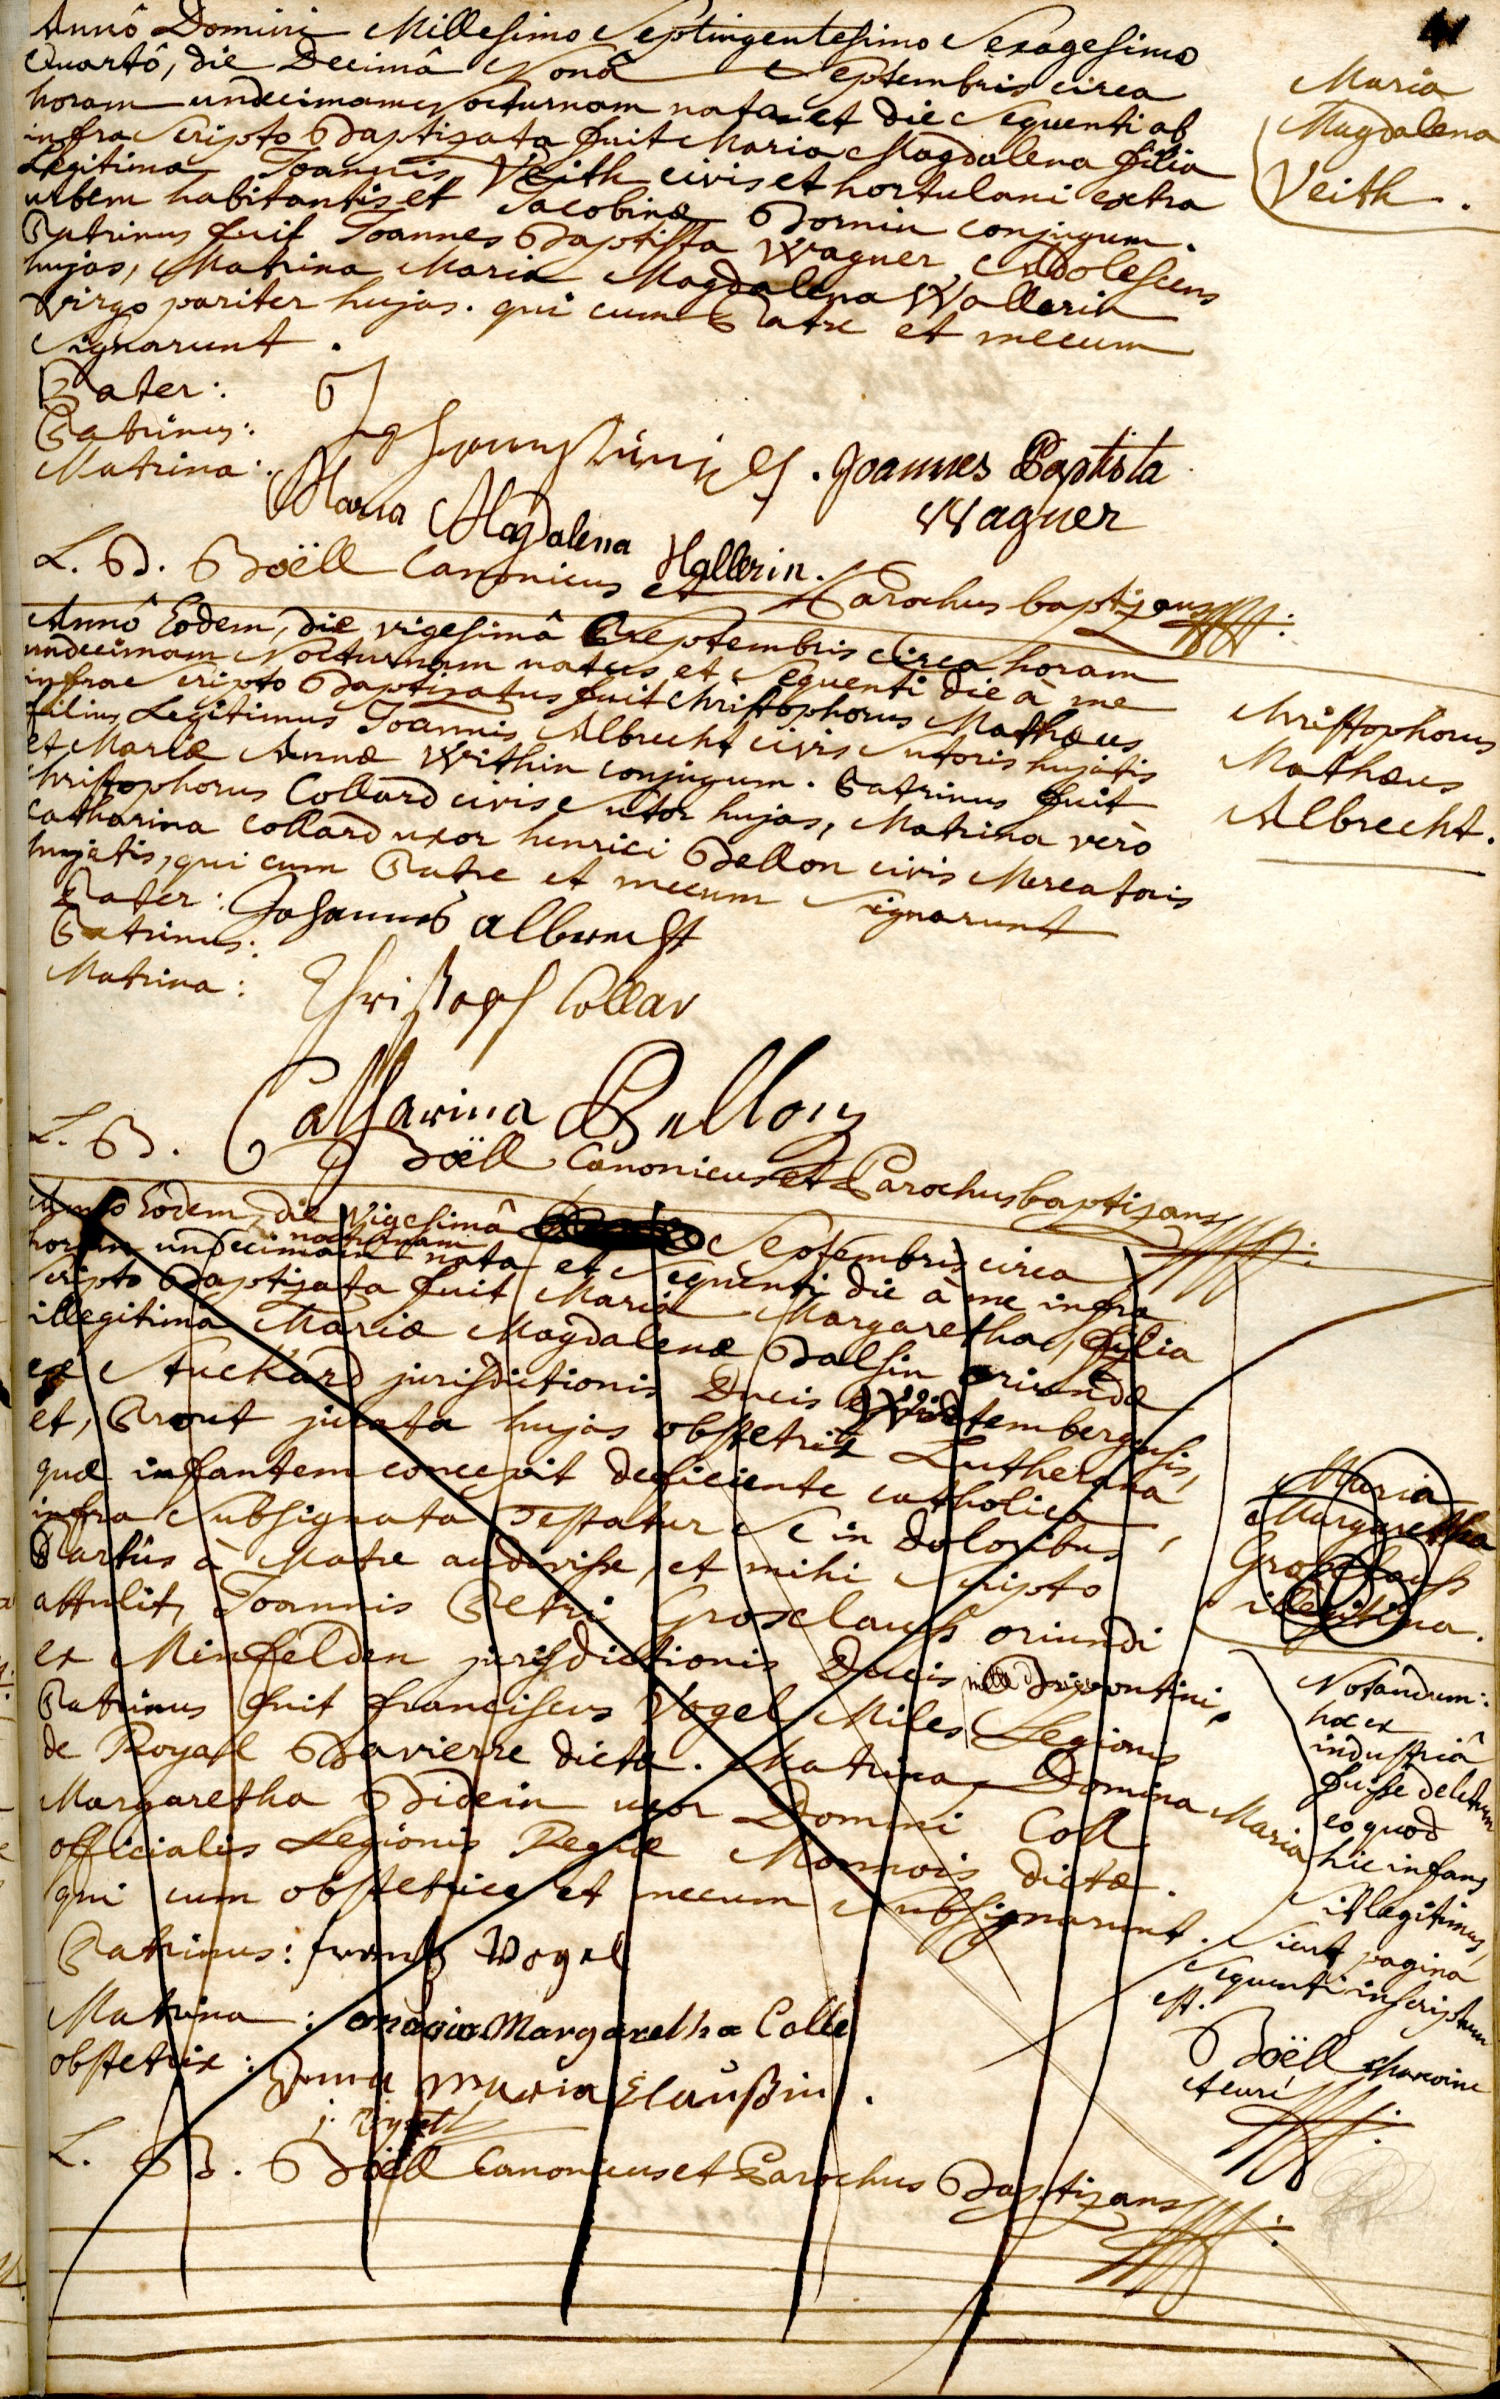 41
Annô Domini Millesimo Septingentesimo Sexagesimo
Quartô, die Decimâ Nonâ Septembris circa
horam undecimam Nocturnam nata et die Sequenti ab
infra Scripto Baptizata fuit Maria Magdalena filia
Legitima Joannis Veith civis et hortulani extra
urbem habitantis et Jacobinæ Dornin conjugum.
Patrinus fuit Joannes Baptista Wagner, Adolescens
hujas, Matrina Maria Magdalena Wallerin
Virgo pariter hujas. qui cum Patre et mecum
Signarunt.
Maria
Magdalena
Veith.
Pater:
Patrinus:
Matrina:
Joannes Baptista
Wagner
Maria Magdalena Hallerin.
L. B. Boëll Canonicus et Parochus baptizans
Annô Eodem, die vigesimâ Septembris circa horam
undecimam Nocturnam natus et Sequenti die à me
infra Scripto Baptizatus fuit Christophorus Mathæus
filius Legitimus Joannis Albrecht civis Sutoris hujatis
et Mariæ Annæ Within conjugum. Patrinus fuit
Christophorus Collard civis Sutor hujas, Matrina verò
Catharina Collard uxor henrici Bellon civis Mercatoris
hujatis, qui cum Patre et mecum Signarunt
Christophorus
Mathæus
Albrecht.
Pater: Johannes albrecht
Patrinus:
Matrina: Christoph Collar
Catharina Bellon
L. B. Boëll Canonicus et Parochus baptizans
Annô Eodem, die Vigesimâ Septembris circa
horam undecimam nocturnam nata et Sequenti die à me infra
Scripto Baptizata fuit Maria Margaretha, filia
illegitima Mariæ Magdalenæ Balsin oriundæ
ex Stuckard jurisdictionis Ducis Wirtembergensis,
et, Prout jurata hujas obstetrix Lutherana
quæ infantem concepit deficiente catholicâ
infra Subsignata Testatur Se in doloribus
Partûs à Matre audivisse, et mihi Scripto
attulit, Joannis Petri Grosclauss oriundi
ex Minfelden jurisdictionis Ducis Bipontini,
Patrinus fuit franciscus Vogel Miles Legionis
de Royall Bavierre dictæ. Matrina, Domina Maria
Margaretha Bidein uxor Domini Coll
officialis Legionis Regiæ dictæ.
qui cum obstetrice et mecum Subsignarunt.
Maria
Margaretha
Grosclauss
illegitima.
Notandum:
hæc ex
industriâ
fuisse deletum
eo quod
hic infans
Sit legitimus,
Sicut pagina
Sequenti inscriptum
est.
Boëll Chanoine
et curé
Patrinus: frantz Vogel
Matrina: maria Margaretha Colle
obstetrix: Anna maria Claußin.
L. B. Boëll Canonicus et Parochus Baptizans